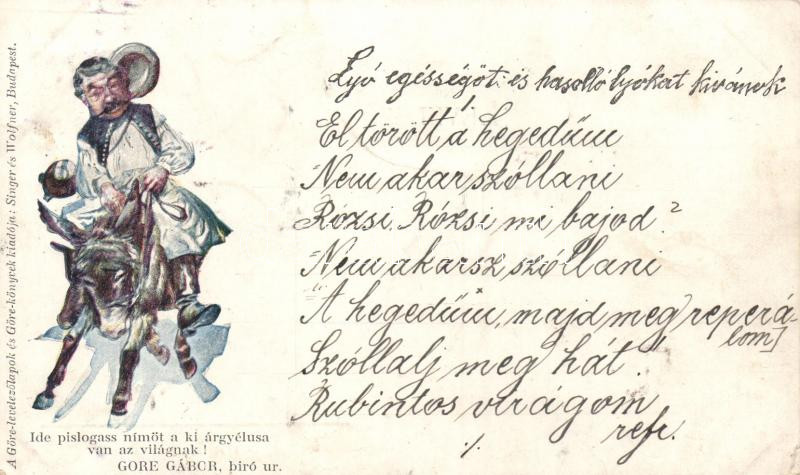 Lyó egésségöt és hasolló lyókat kivánok
El törött a hegedűm
Nem akar szóllani
Rózsi, Rózsi mi bajod?
Nem akarsz szóllani
A hegedűm, majd meg reperá-
lom]
Szóllalj meg hát!
Rubintos virágom
refr.
·/.
Ide pislogass nímöt a ki árgyélusa
van az világnak!
GÖRE GÁBOR, biró ur.
A Göre-levelezőlapok és Göre-könyvek kiadója: Singer és Wolfner, Budapest.